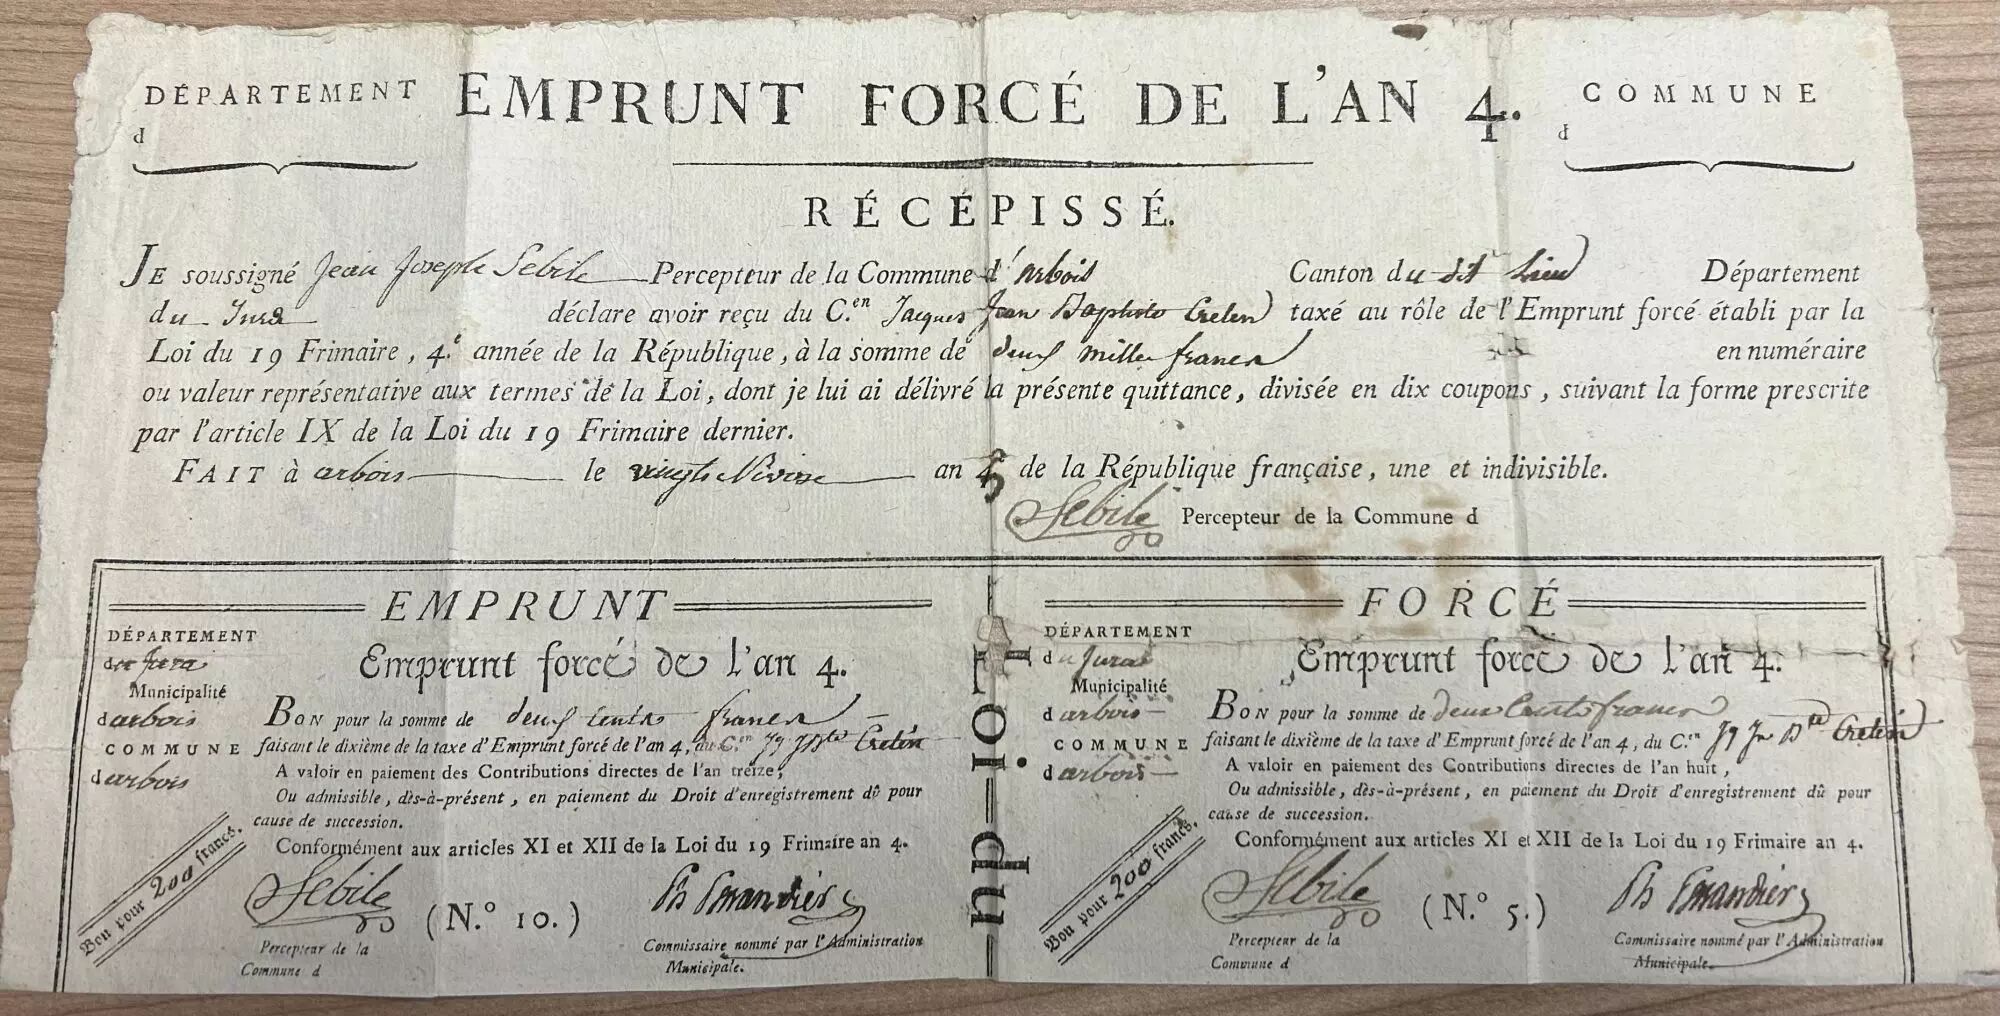 DÉPARTEMENT
d
EMPRUNT FORCÉ DE L'AN 4.
COMMUNE
d
RÉCÉPISSÉ.
JE soussigné Jean Joseph Sebile Percepteur de la Commune d'arbois Canton du dit lieu Département
du Jura déclare avoir reçu du C.en Jacques Jean Baptiste Cretin taxé au rôle de l'Emprunt forcé établi par la
Loi du 19 Frimaire, 4.e année de la République, à la somme de deux mille francs en numéraire
ou valeur représentative aux termes de la Loi, dont je lui ai délivré la présente quittance, divisée en dix coupons, suivant la forme prescrite
par l'article IX de la Loi du 19 Frimaire dernier.
FAIT à arbois le vingt Nivose an 4 de la République française, une et indivisible.
Sebile Percepteur de la Commune d
EMPRUNT
DÉPARTEMENT
du Jura
Municipalité
d arbois
COMMUNE
d arbois
Emprunt forcé de l'an 4.
BON pour la somme de deux cents francs
faisant le dixième de la taxe d'Emprunt forcé de l'an 4, du C.en Jq Jn Bte Cretin
A valoir en paiement des Contributions directes de l'an treize;
Ou admissible, dès-à-présent, en paiement du Droit d'enregistrement dû pour
cause de succession.
Conformément aux articles XI et XII de la Loi du 19 Frimaire an 4.
Bon pour 200 francs.
Sebile
(N.º 10.)
Percepteur de la
Commune d
Commissaire nommé par l'Administration
Municipale.
du-ioT.
FORCÉ
DÉPARTEMENT
du Jura
Municipalité
d arbois
COMMUNE
d arbois
Emprunt forcé de l'an 4.
BON pour la somme de deux Cents francs
faisant le dixième de la taxe d'Emprunt forcé de l'an 4, du C.en Jq Jn Bte Cretin
A valoir en paiement des Contributions directes de l'an huit,
Ou admissible, dès-à-présent, en paiement du Droit d'enregistrement dû pour
cause de succession.
Conformément aux articles XI et XII de la Loi du 19 Frimaire an 4.
Bon pour 200 francs.
Sebile
(N.º 5.)
Percepteur de la
Commune d
Commissaire nommé par l'Administration
Municipale.